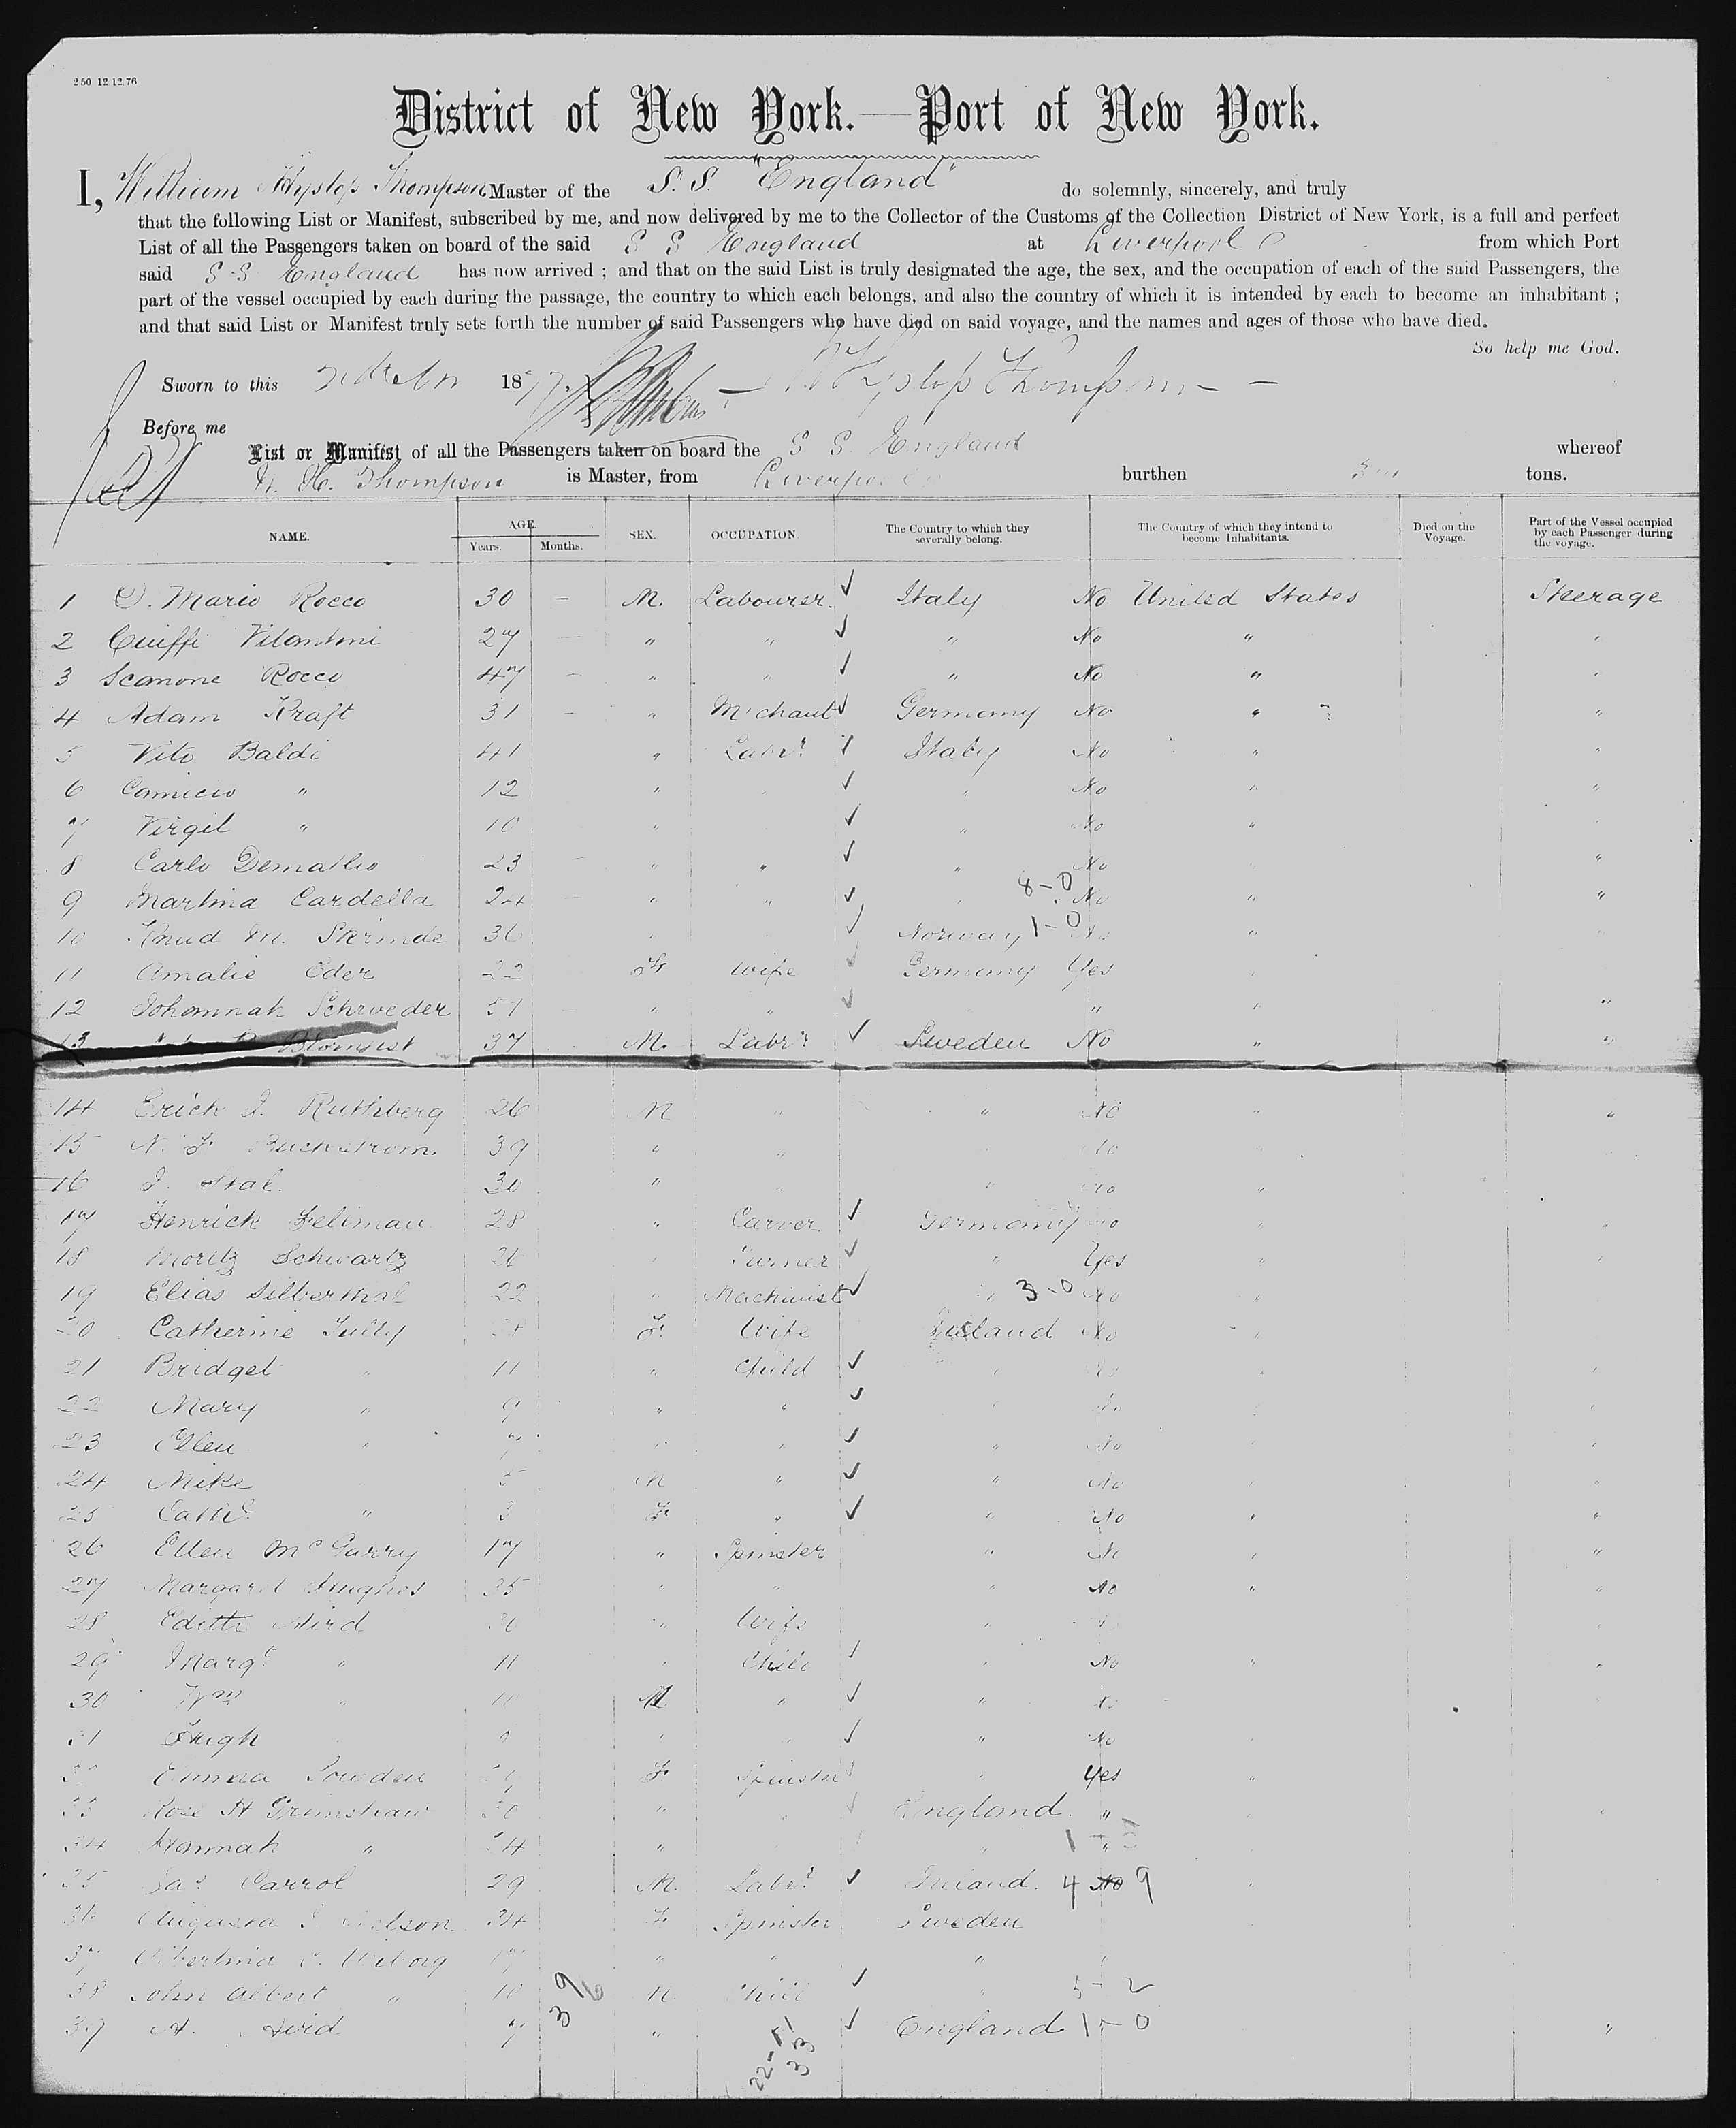 250 12.12.76
District of New York.—Port of New York.
I, William Hyslop Thompson Master of the S.S. "England" do solemnly, sincerely, and truly
that the following List or Manifest, subscribed by me, and now delivered by me to the Collector of the Customs of the Collection District of New York, is a full and perfect
List of all the Passengers taken on board of the said S S England at Liverpool from which Port
said S S England has now arrived ; and that on the said List is truly designated the age, the sex, and the occupation of each of the said Passengers, the
part of the vessel occupied by each during the passage, the country to which each belongs, and also the country of which it is intended by each to become an inhabitant ;
and that said List or Manifest truly sets forth the number of said Passengers who have died on said voyage, and the names and ages of those who have died.
So help me God.
Sworn to this 1877. W Hyslop Thompson
Before me
List or Manifest of all the Passengers taken on board the S S England whereof
W. H. Thompson is Master, from Liverpool burthen tons.
NAME. AGE. Years. Months. SEX. OCCUPATION. The Country to which they severally belong. The Country of which they intend to become Inhabitants. Died on the Voyage. Part of the Vessel occupied by each Passenger during the voyage.
1 D. Mario Rocco 30 — M. Labourer. ✓ Italy No United States Steerage
2 Cuiffi Vitantoni 27 — " " ✓ " No " "
3 Scanone Rocco 47 — " " ✓ " No " "
4 Adam Kraft 31 — " Mchant ✓ Germany No " "
5 Vito Baldi 41 " Labr. ✓ Italy No " "
6 Camicio " 12 " ✓ " No " "
7 Virgil " 10 " ✓ " No "
8 Carlo Dematteo 23 " " ✓ " No "
9 Martina Cardella 24 " " ✓ " 8-0 No " "
10 Knud M. Skrinde 36 ✓ Norway 1-0 No "
11 Amalie Eder 22 F Wife ✓ Germany Yes
12 Johannah Schroeder 51 " " ✓ " " "
13 Blomqist 37 M. Labr. ✓ Sweden No " "
14 Erick J. Ruthberg 26 M " " No " "
15 N. F. Buckstrom. 39 " " No
16 J. Stal. 30 " " No "
17 Henrick Felliman 28 " Carver ✓ Germany No
18 Moritz Schwartz 26 Turner ✓ " Yes
19 Elias Silberthal 22 " Machinist ✓ " 3-0 No
20 Catherine Tully 38 F. Wife Ireland No
21 Bridget " 11 " Child ✓ " No
22 Mary " 9 " " ✓ No
23 Ellen " 7 " " ✓ " No
24 Mike 5 M " ✓ " No
25 Cathe. " 3 F " ✓ " No " "
26 Ellen McGarry 17 " Spinster " No "
27 Margaret Hughes 35 " " " No "
28 Edith Aird 30 " Wife "
29 Margt. " 11 " Child ✓ " No "
30 Wm " 10 M " ✓ " No
31 Hugh ✓ " No
32 Emma Sowden F Spinster ✓ Yes
33 Rose H Grimshaw 30 " ✓ England. "
34 Hannah " 24 " "
35 Jas. Carrol 29 M. Labr. ✓ Ireland. 4 No 9
36 Augusta Nelson 34 F Spinster Sweden
37 Albertina C. Wiborg 17 " " "
38 John Albert " 10 M. Child ✓ 5-2
39 A. Avid 7 " ✓ England 1-0 "
39
22-11
33